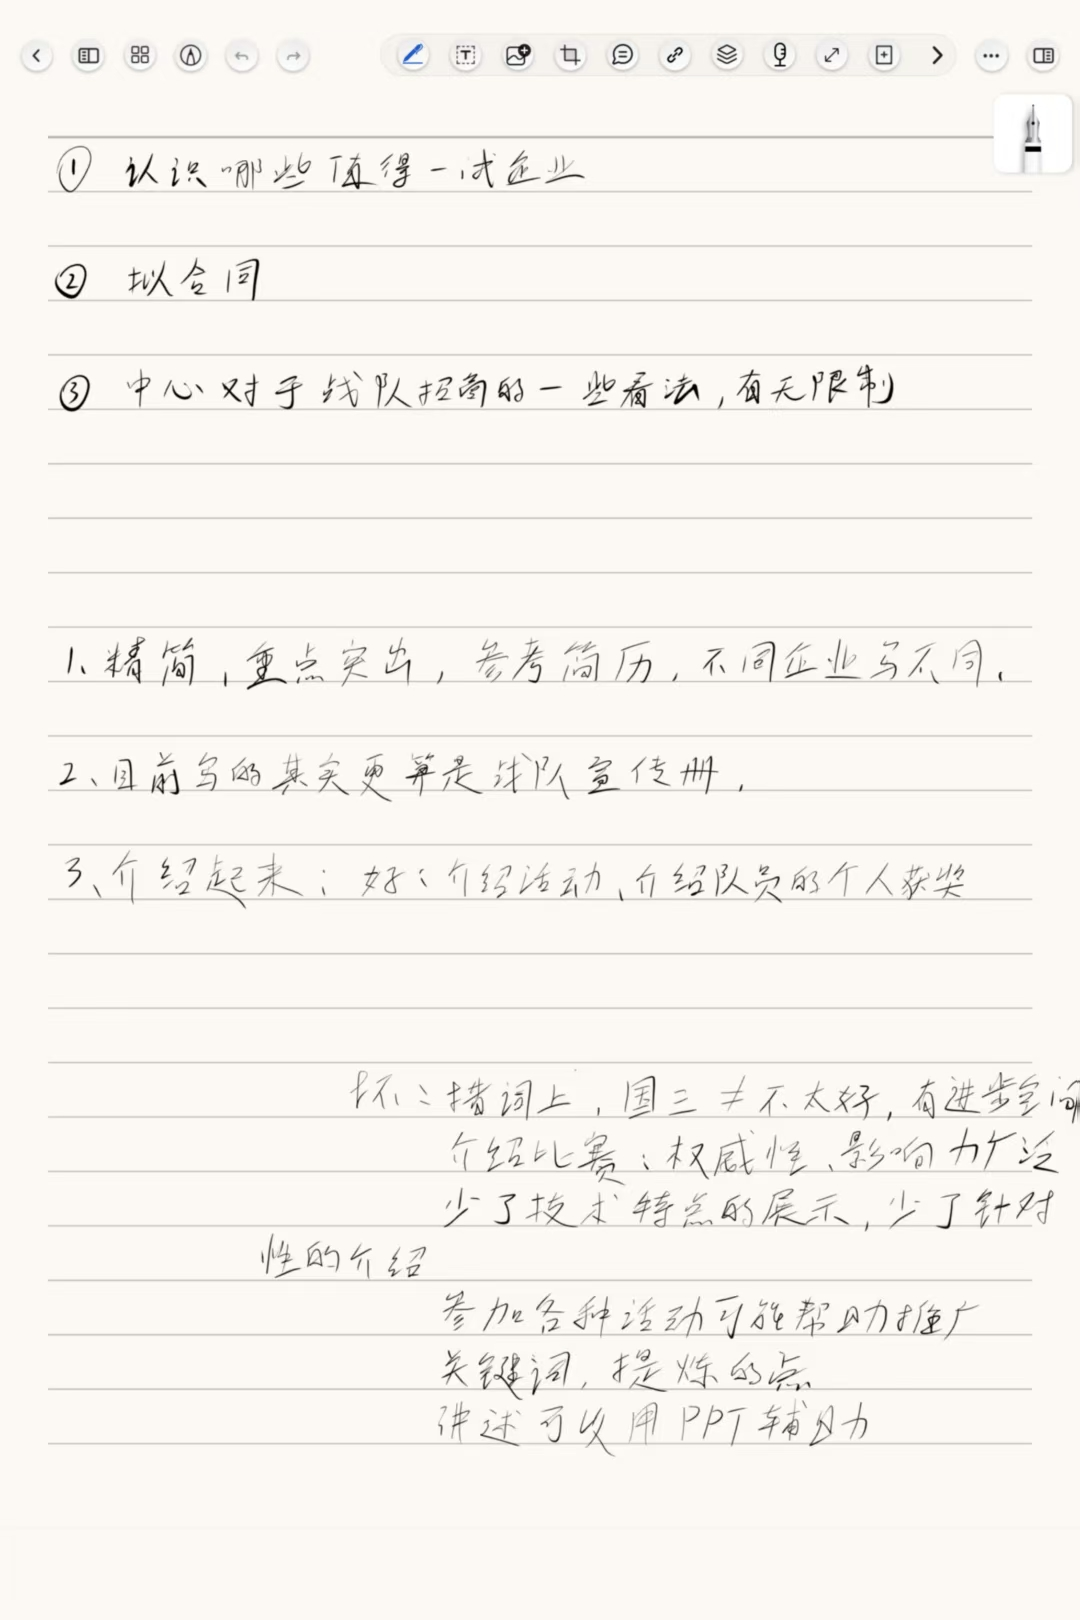 ① 认识哪些值得一试企业
② 拟合同
③ 中心对于战队招商的一些看法,有无限制
1、精简、重点突出,参考简历,不同企业写不同、
2、目前写的其实更算是战队宣传册,
3、介绍起来:好:介绍活动、介绍队员的个人获奖
坏:措词上,国三≠不太好,有进步空间
介绍比赛:权威性、影响力广泛
少了技术特点的展示,少了针对
性的介绍
参加各种活动可能帮助推广
关键词,提炼的点
讲述可以用PPT辅助